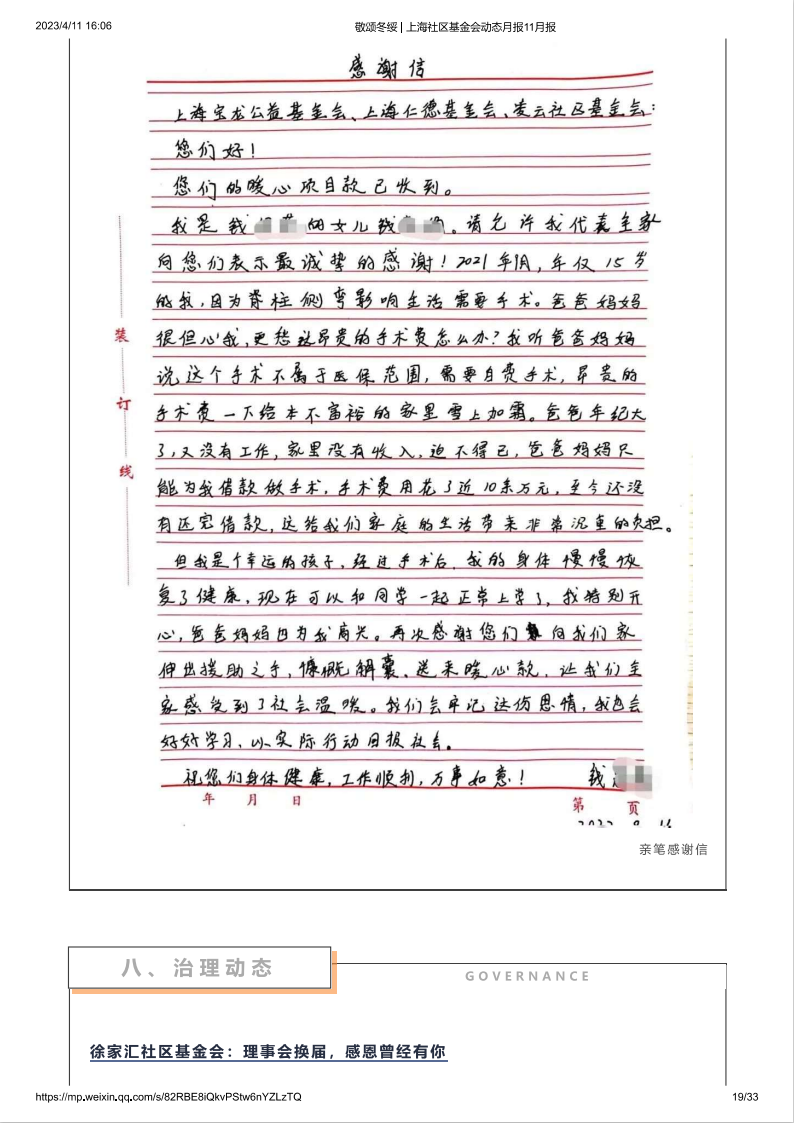 2023/4/11 16:06
敬颂冬绥 | 上海社区基金会动态月报11月报
感谢信
上海宝龙公益基金会、上海仁德基金会、凌云社区基金会：
您们好！
您们的暖心项目款已收到。
我是钱 的女儿钱 。请允许我代表全家
向您们表示最诚挚的感谢！2021年 月，年仅15岁
的我，因为脊柱侧弯影响生活需要手术。爸爸妈妈
很但心我，更愁这昂贵的手术费怎么办？我听爸爸妈妈
说这个手术不属于医保范围，需要自费手术，昂贵的
手术费一下给本不富裕的家里雪上加霜。爸爸年纪大
了，又没有工作，家里没有收入，迫不得已，爸爸妈妈只
能为我借款做手术，手术费用花了近10余万元，至今还没
有还完借款，这给我们家庭的生活带来非常沉重的负担。
但我是个幸运的孩子，经过手术后，我的身体慢慢恢
复了健康，现在可以和同学一起正常上学了，我特别开
心，爸爸妈妈也为我高兴。再次感谢您们 向我们家
伸出援助之手，慷慨解囊、送来暖心款，让我们全
家感受到了社会温暖。我们会牢记这份恩情，我也会
好好学习、以实际行动回报社会。
祝您们身体健康，工作顺利，万事如意！ 钱
装
订
线
年 月 日
第 页
亲笔感谢信
八、治理动态
GOVERNANCE
徐家汇社区基金会：理事会换届，感恩曾经有你
https://mp.weixin.qq.com/s/82RBE8iQkvPStw6nYZLzTQ
19/33